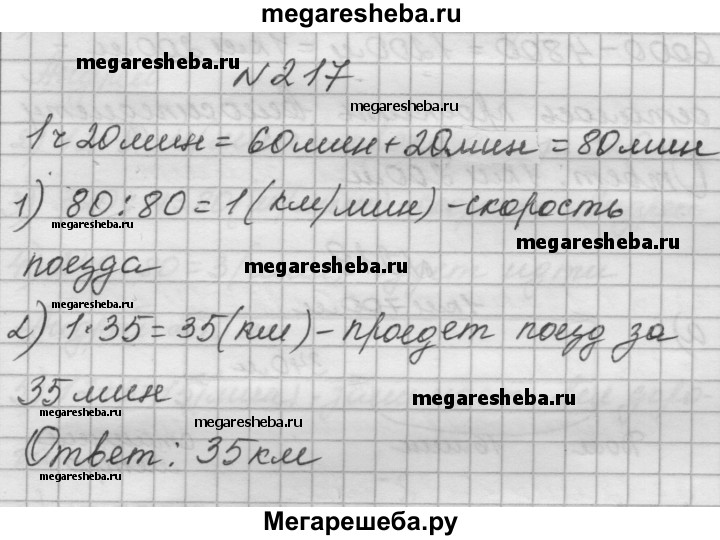 megaresheba.ru
megaresheba.ru
N 217
megaresheba.ru
1 ч 20 мин = 60 мин + 20 мин = 80 мин
1) 80 : 80 = 1 (км/мин) - скорость
megaresheba.ru
megaresheba.ru
поезда
megaresheba.ru
megaresheba.ru
2) 1 · 35 = 35 (км) - проедет поезд за
35 мин
megaresheba.ru
megaresheba.ru
megaresheba.ru
Ответ: 35 км
megaresheba.ru
Мегарешеба.ру